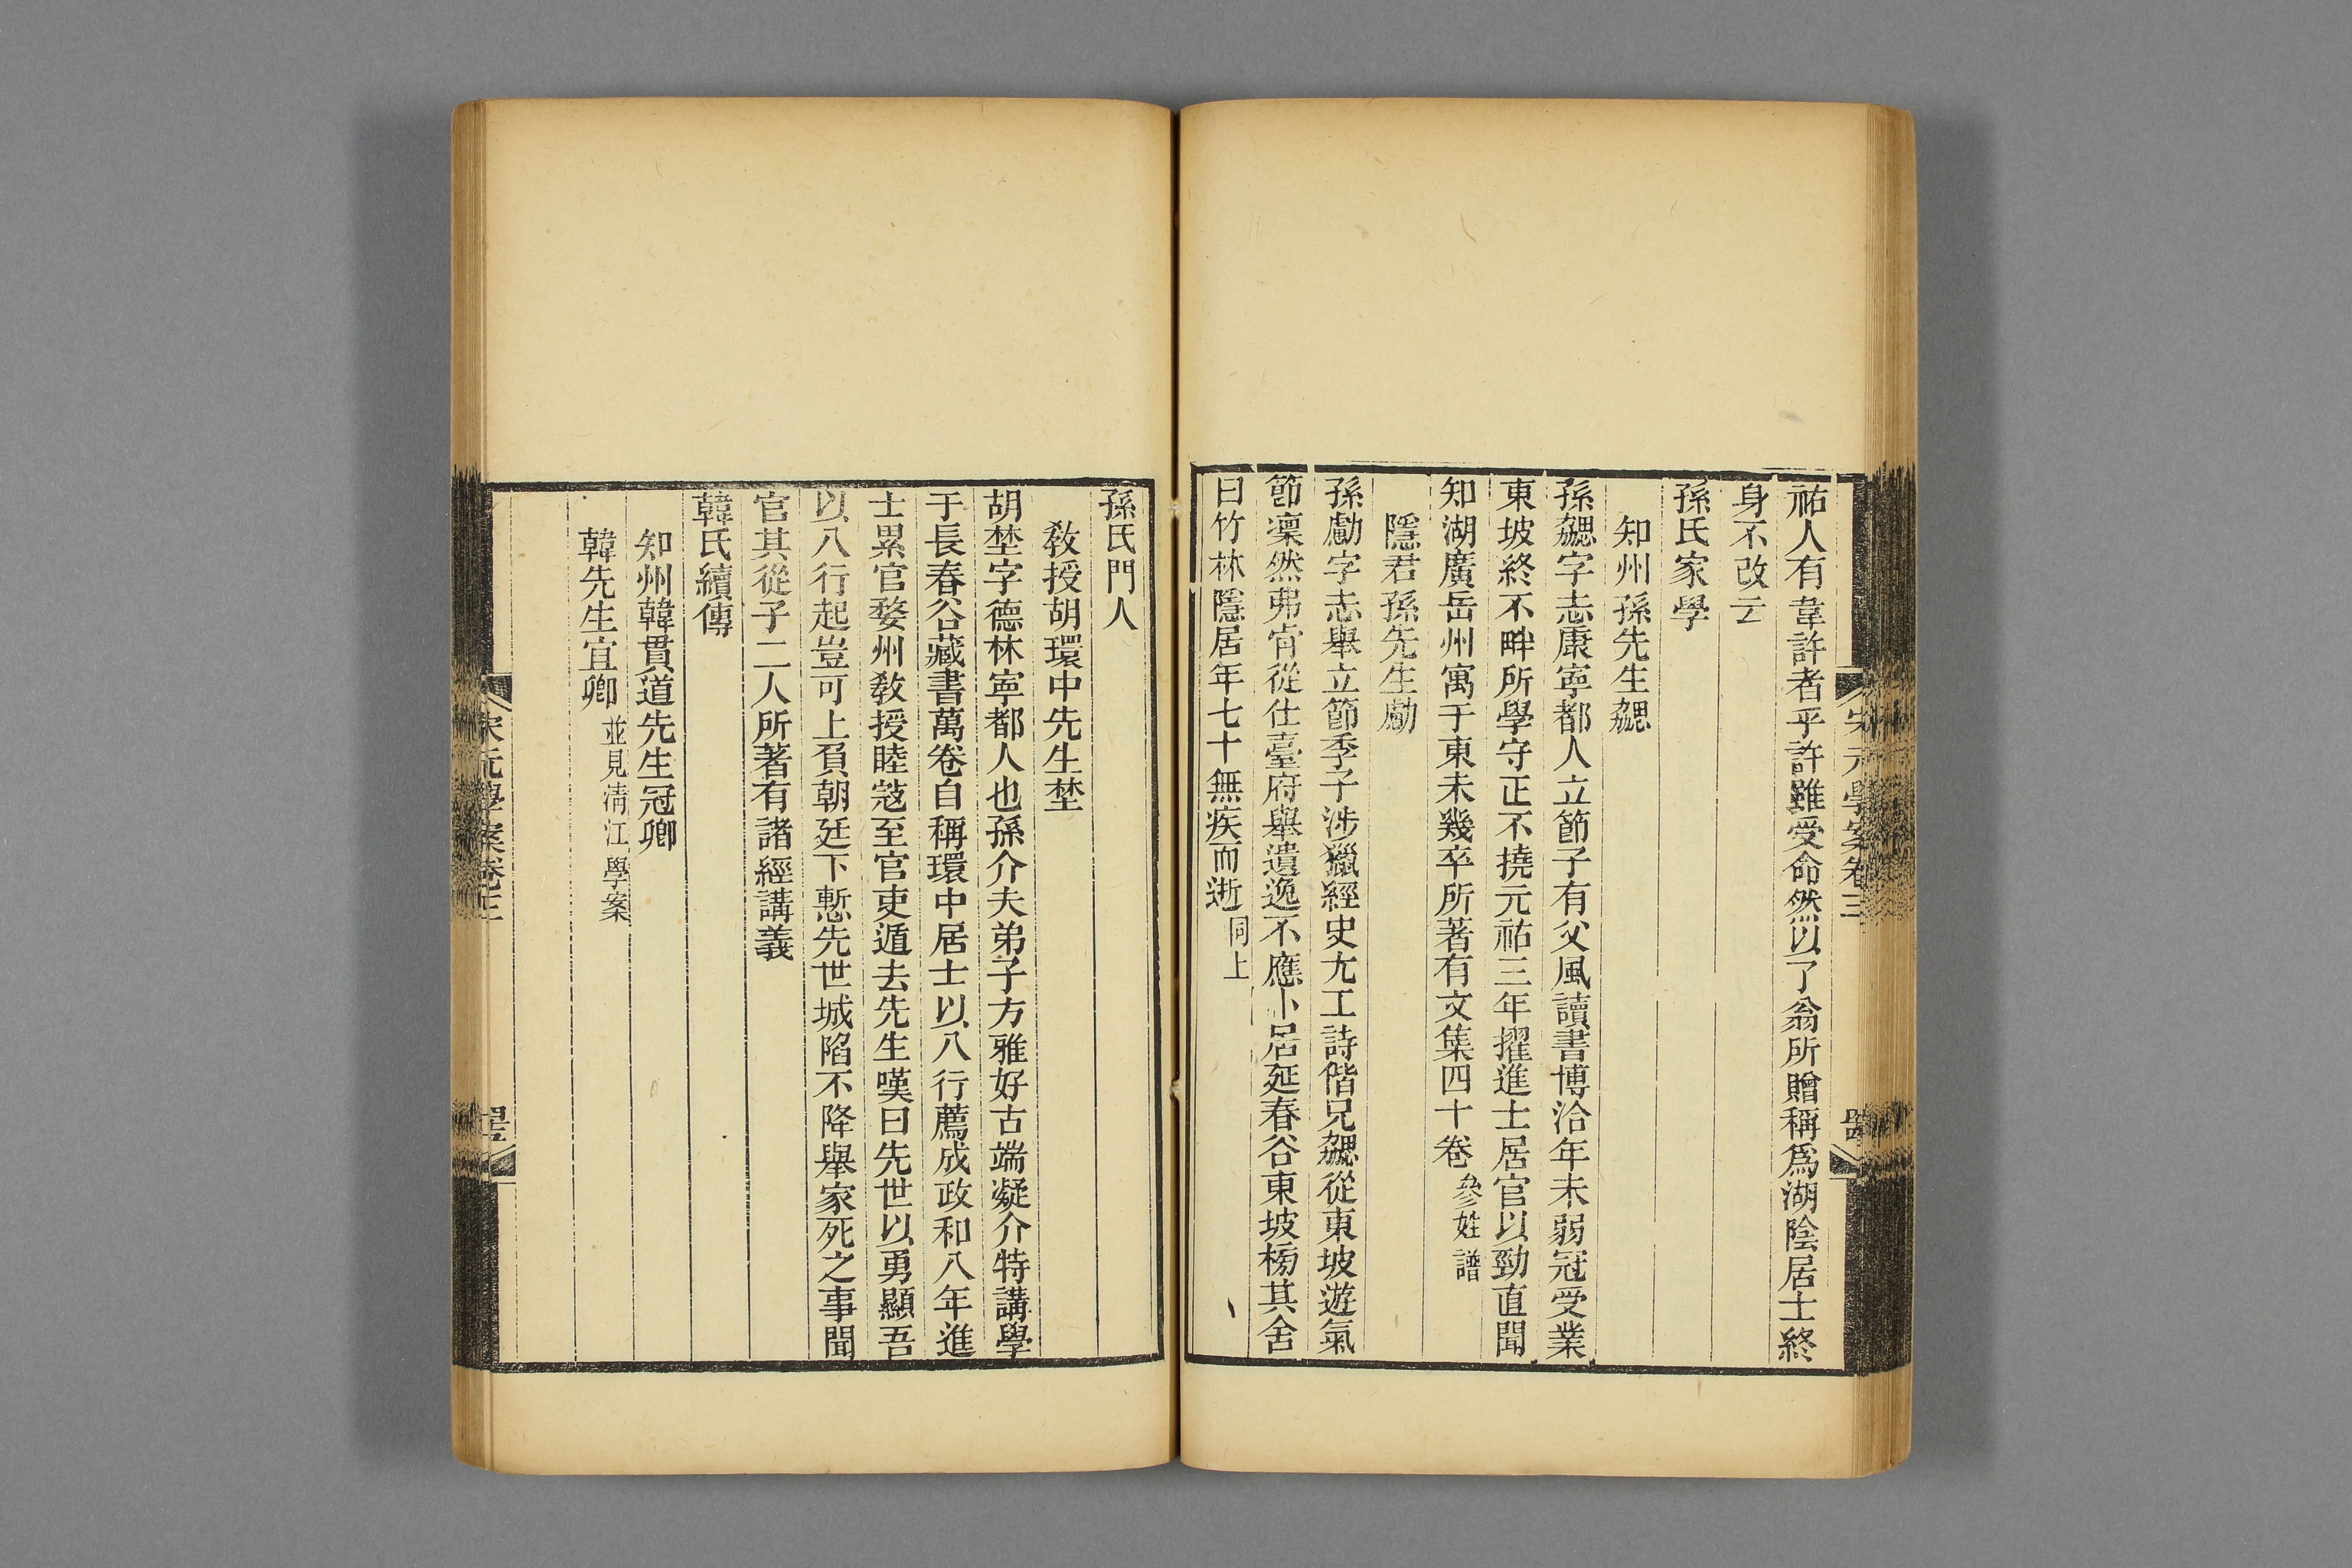 祐人有韋許者乎許雖受命然以了翁所贈稱爲湖陰居士終
身不改云
孫氏家學
知州孫先生勰
孫勰字志康寧都人立節子有父風讀書博洽年未弱冠受業
東坡終不畔所學守正不撓元祐三年擢進士居官以勁直聞
知湖廣岳州寓于東未幾卒所著有文集四十卷參姓譜
隱君孫先生勴
孫勴字志舉立節季子涉獵經史尢工詩偕兄勰從東坡遊氣
節凜然弗肯從仕臺府舉遺逸不應卜居延春谷東坡榜其舍
曰竹林隱居年七十無疾而逝同上
宋元學案卷三
孫氏門人
敎授胡環中先生埜
胡埜字德林寧都人也孫介夫弟子方雅好古端凝介特講學
于長春谷藏書萬卷自稱環中居士以八行薦成政和八年進
士累官婺州敎授睦寇至官吏遁去先生嘆曰先世以勇顯吾
以八行起豈可上負朝廷下慙先世城陷不降舉家死之事聞
官其從子二人所著有諸經講義
韓氏續傳
知州韓貫道先生冠卿
韓先生宜卿並見淸江學案
宋元學案卷三